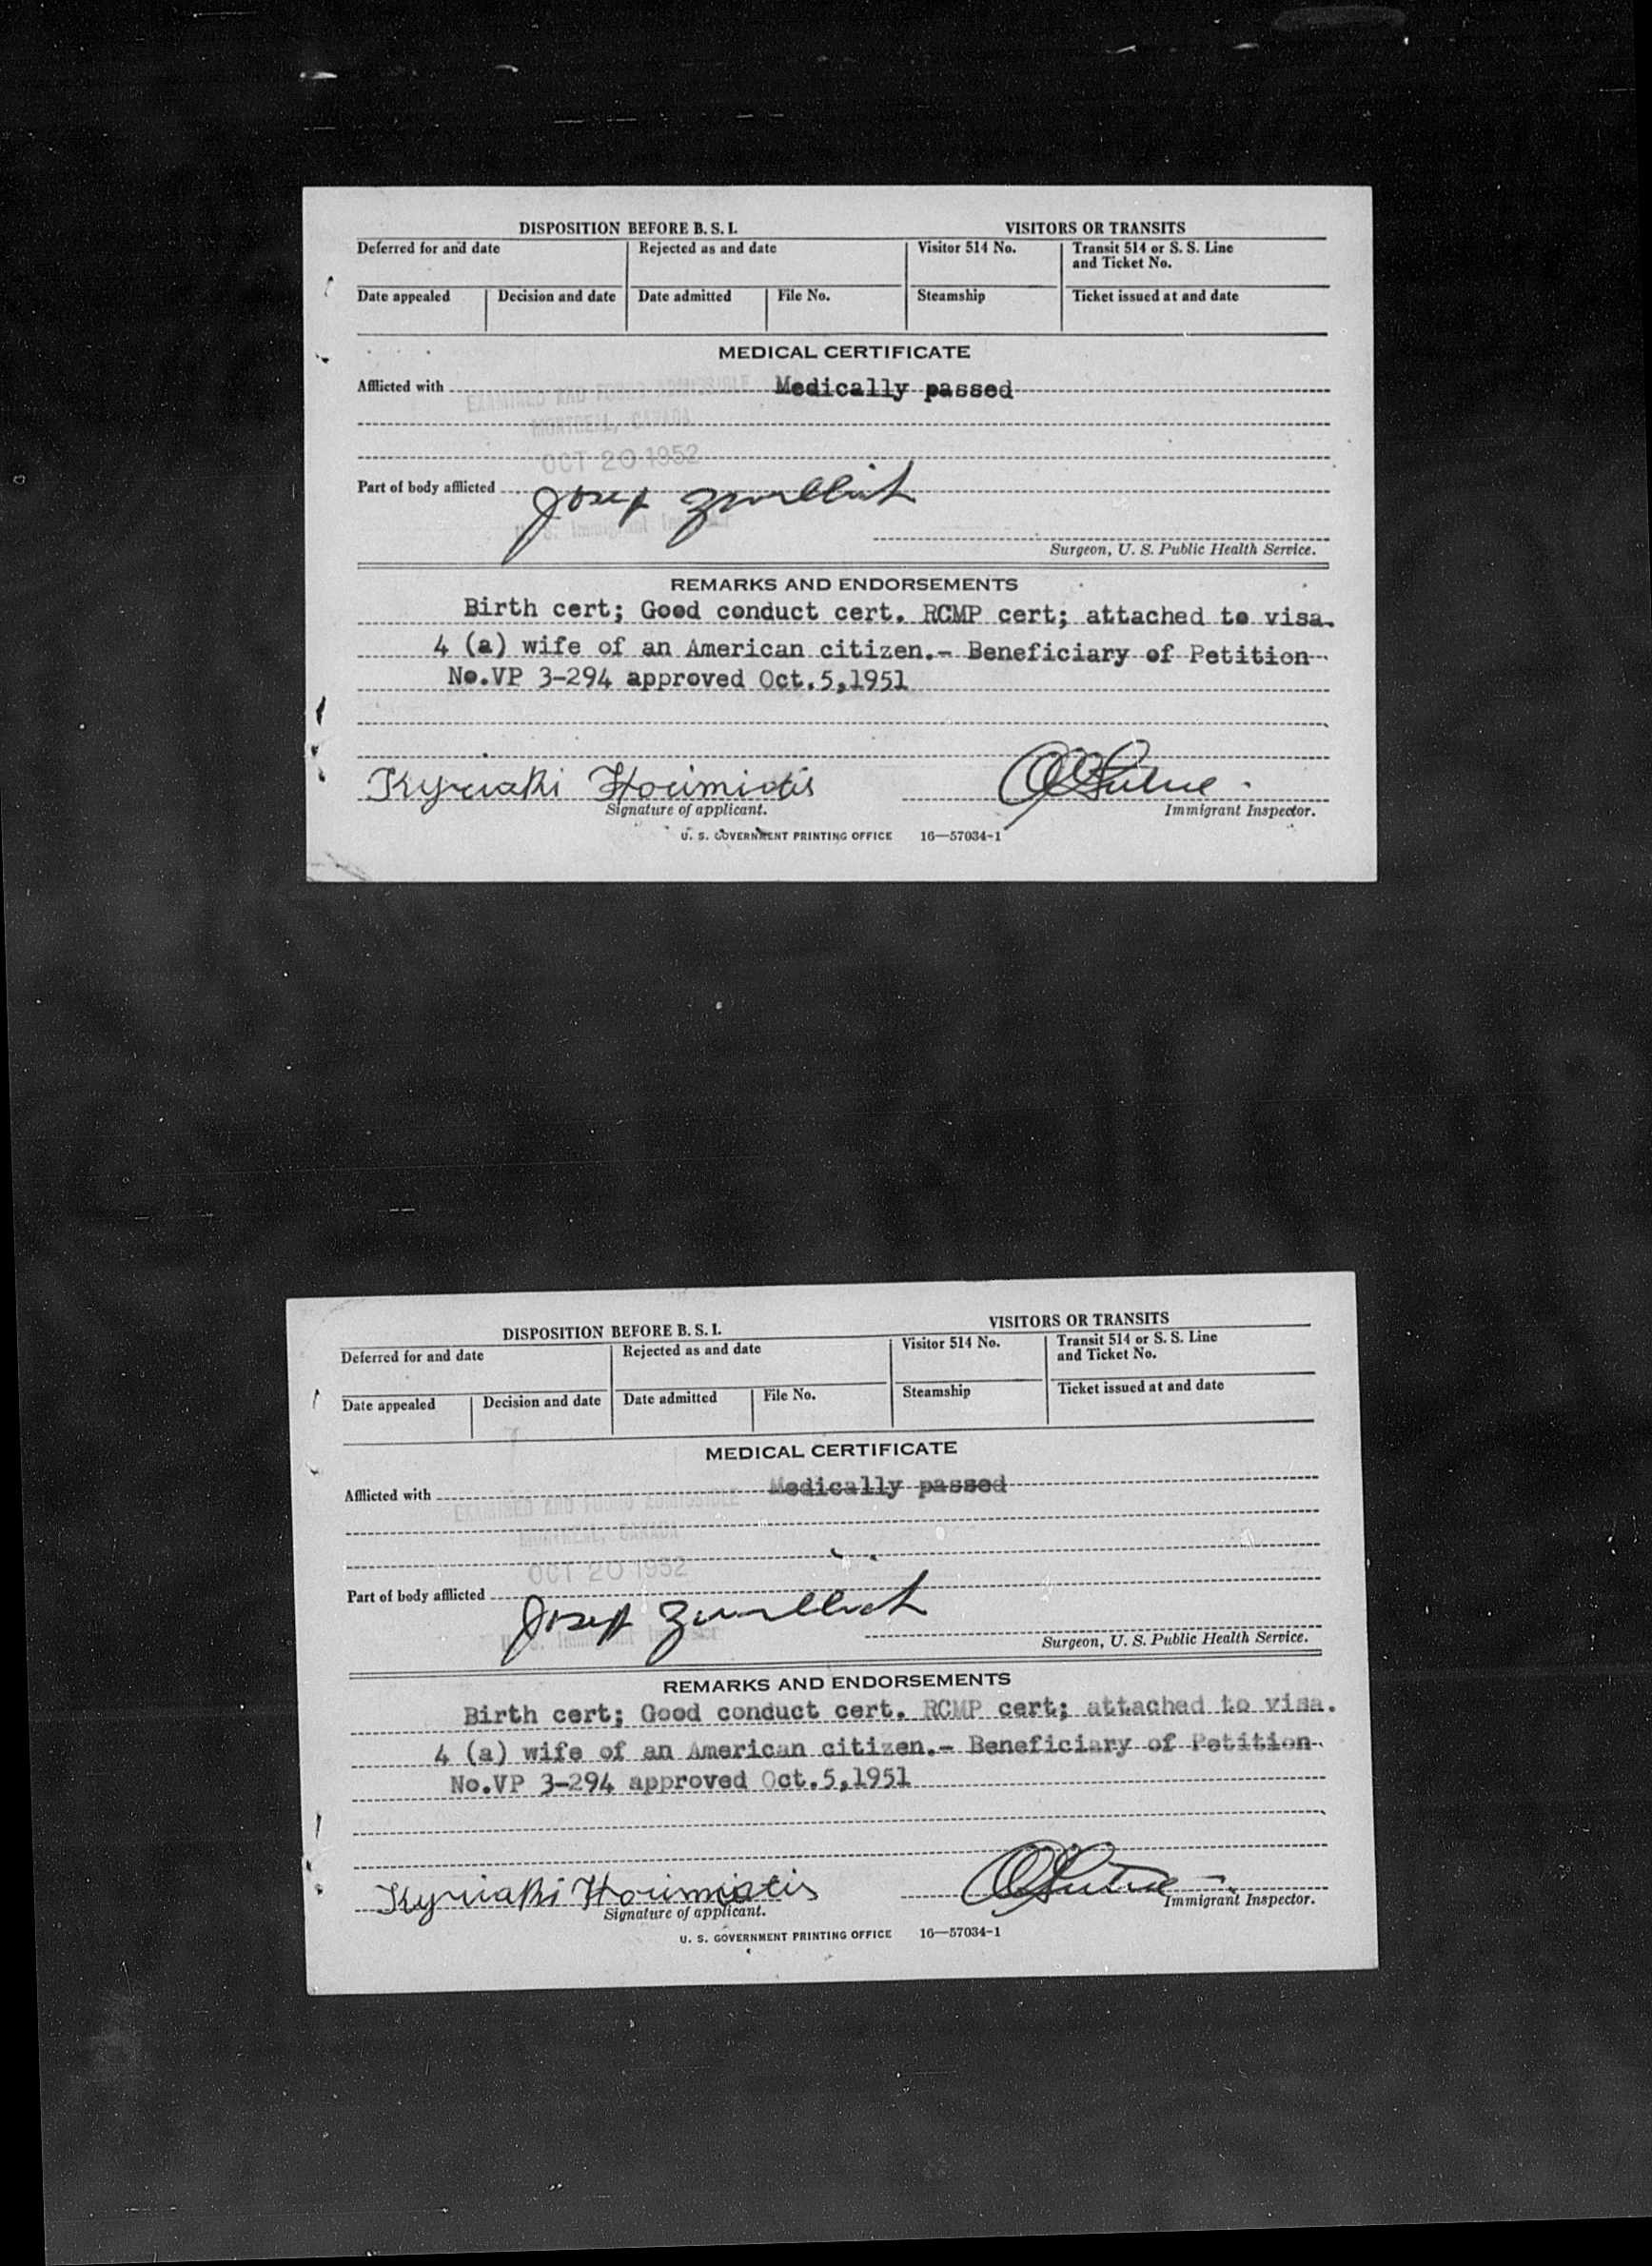 DISPOSITION BEFORE B. S. I. VISITORS OR TRANSITS
Deferred for and date Rejected as and date Visitor 514 No. Transit 514 or S. S. Line
and Ticket No.
Date appealed Decision and date Date admitted File No. Steamship Ticket issued at and date
MEDICAL CERTIFICATE
Afflicted with Medically passed
EXAMINED AND FOUND ADMISSIBLE
MONTREAL, CANADA
OCT 20 1952
Part of body afflicted Josep
U. S. Immigrant Inspector
Surgeon, U. S. Public Health Service.
REMARKS AND ENDORSEMENTS
Birth cert; Good conduct cert. RCMP cert; attached to visa.
4 (a) wife of an American citizen.- Beneficiary of Petition
No.VP 3-294 approved Oct.5,1951
Kyriaki Hourmiotis
Signature of applicant. Immigrant Inspector.
U. S. GOVERNMENT PRINTING OFFICE 16—57034-1
DISPOSITION BEFORE B. S. I. VISITORS OR TRANSITS
Deferred for and date Rejected as and date Visitor 514 No. Transit 514 or S. S. Line
and Ticket No.
Date appealed Decision and date Date admitted File No. Steamship Ticket issued at and date
MEDICAL CERTIFICATE
Afflicted with Medically passed
EXAMINED AND FOUND ADMISSIBLE
MONTREAL, CANADA
OCT 20 1952
Part of body afflicted Josep
U. S. Immigrant Inspector
Surgeon, U. S. Public Health Service.
REMARKS AND ENDORSEMENTS
Birth cert; Good conduct cert. RCMP cert; attached to visa.
4 (a) wife of an American citizen.- Beneficiary of Petition
No.VP 3-294 approved Oct.5,1951
Kyriaki Hourmiotis
Signature of applicant. Immigrant Inspector.
U. S. GOVERNMENT PRINTING OFFICE 16—57034-1